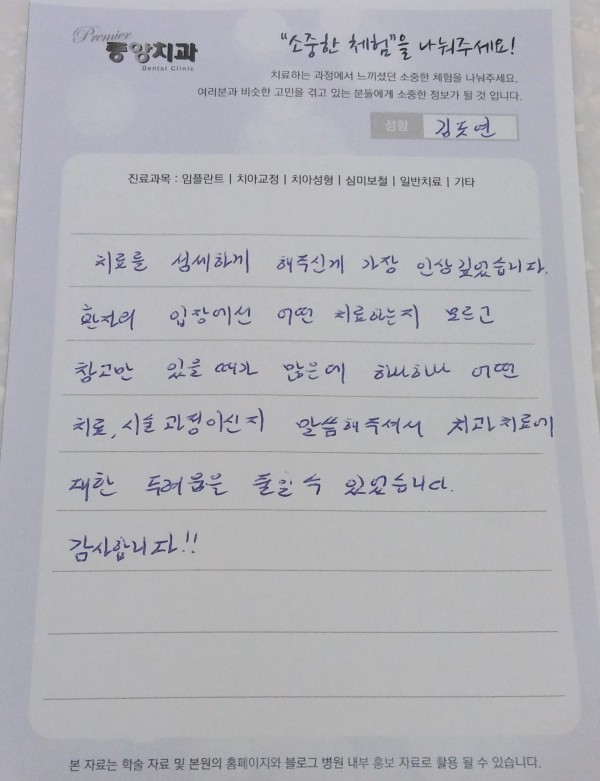 Premier
중앙치과
Dental Clinic
"소중한 체험"을 나눠주세요!
치료하는 과정에서 느끼셨던 소중한 체험을 나눠주세요.
여러분과 비슷한 고민을 겪고 있는 분들에게 소중한 정보가 될 것 입니다.
성함 김
진료과목 : 임플란트 | 치아교정 | 치아성형 | 심미보철 | 일반치료 | 기타
치료를 섬세하게 해주신게 가장 인상깊었습니다.
환자의 입장에선 어떤 치료하는지 모르고
참고만 있을 때가 많은데 하나하나 어떤
치료, 시술 과정이신지 말씀해주셔서 치과치료에
대한 두려움을 줄일 수 있었습니다.
감사합니다!!
본 자료는 학술 자료 및 본원의 홈페이지와 블로그 병원 내부 홍보 자료로 활용 될 수 있습니다.